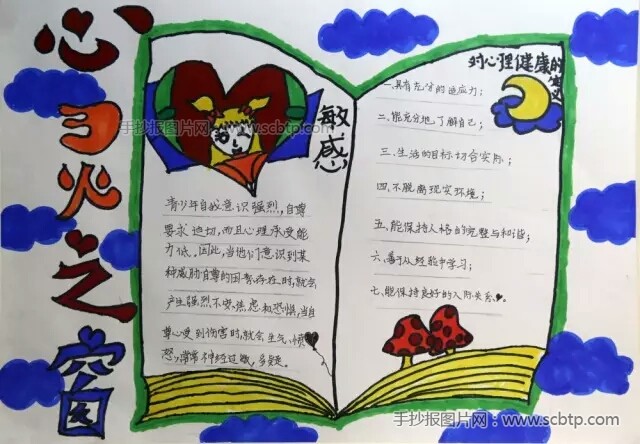 心灵之窗
手抄报图片网：www.scbtp.com
敏感
青少年自我意识强烈，自尊
要求迫切，而且心理承受能
力低。因此，当他们意识到某
种威胁自尊的因素存在时，就会
产生强烈不安、焦虑和恐惧，当自
尊心受到伤害时，就会生气、愤
怒，常常神经过敏，多疑。
对心理健康的定义
一.具有充分的适应力；
二.能充分地了解自己；
三.生活的目标切合实际；
四.不脱离现实环境；
五.能保持人格的完整与和谐；
六.善于从经验中学习；
七.能保持良好的人际关系。
手抄报图片网：www.scbtp.com